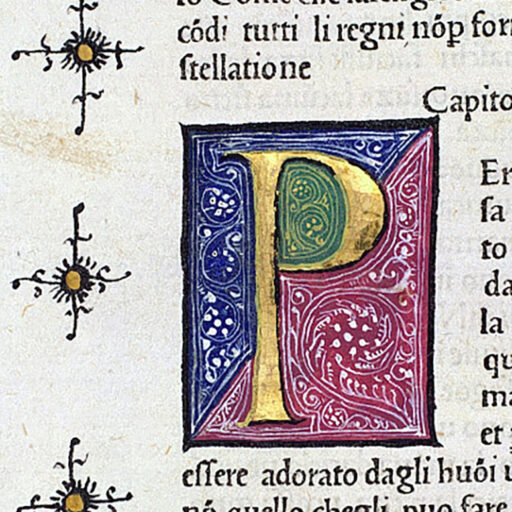 cōdi tutti li regni, nōp for
ſtellatione
Capito
P
Er
ſa
to
da
la
qu
ma
et
eſſere adorato dagli huōi u
nō quello chegli puo fare